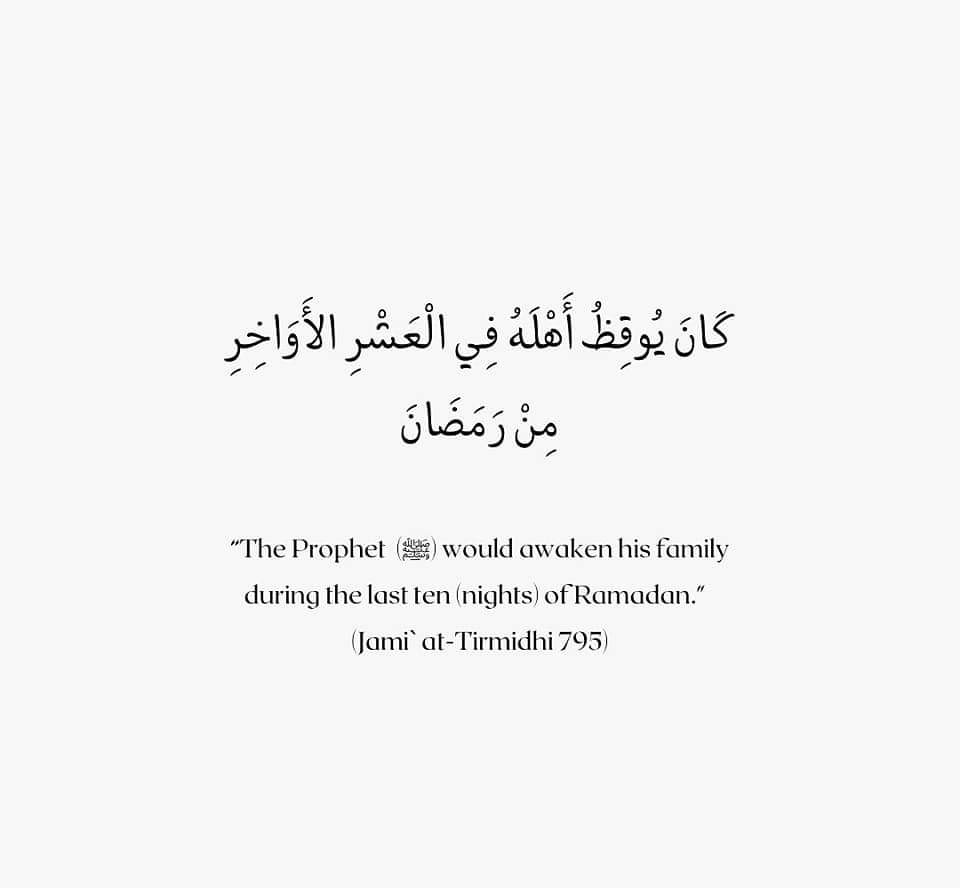 كَانَ يُوقِظُ أَهْلَهُ فِي الْعَشْرِ الأَوَاخِرِ
مِنْ رَمَضَانَ
"The Prophet (ﷺ) would awaken his family
during the last ten (nights) of Ramadan."
(Jami` at-Tirmidhi 795)